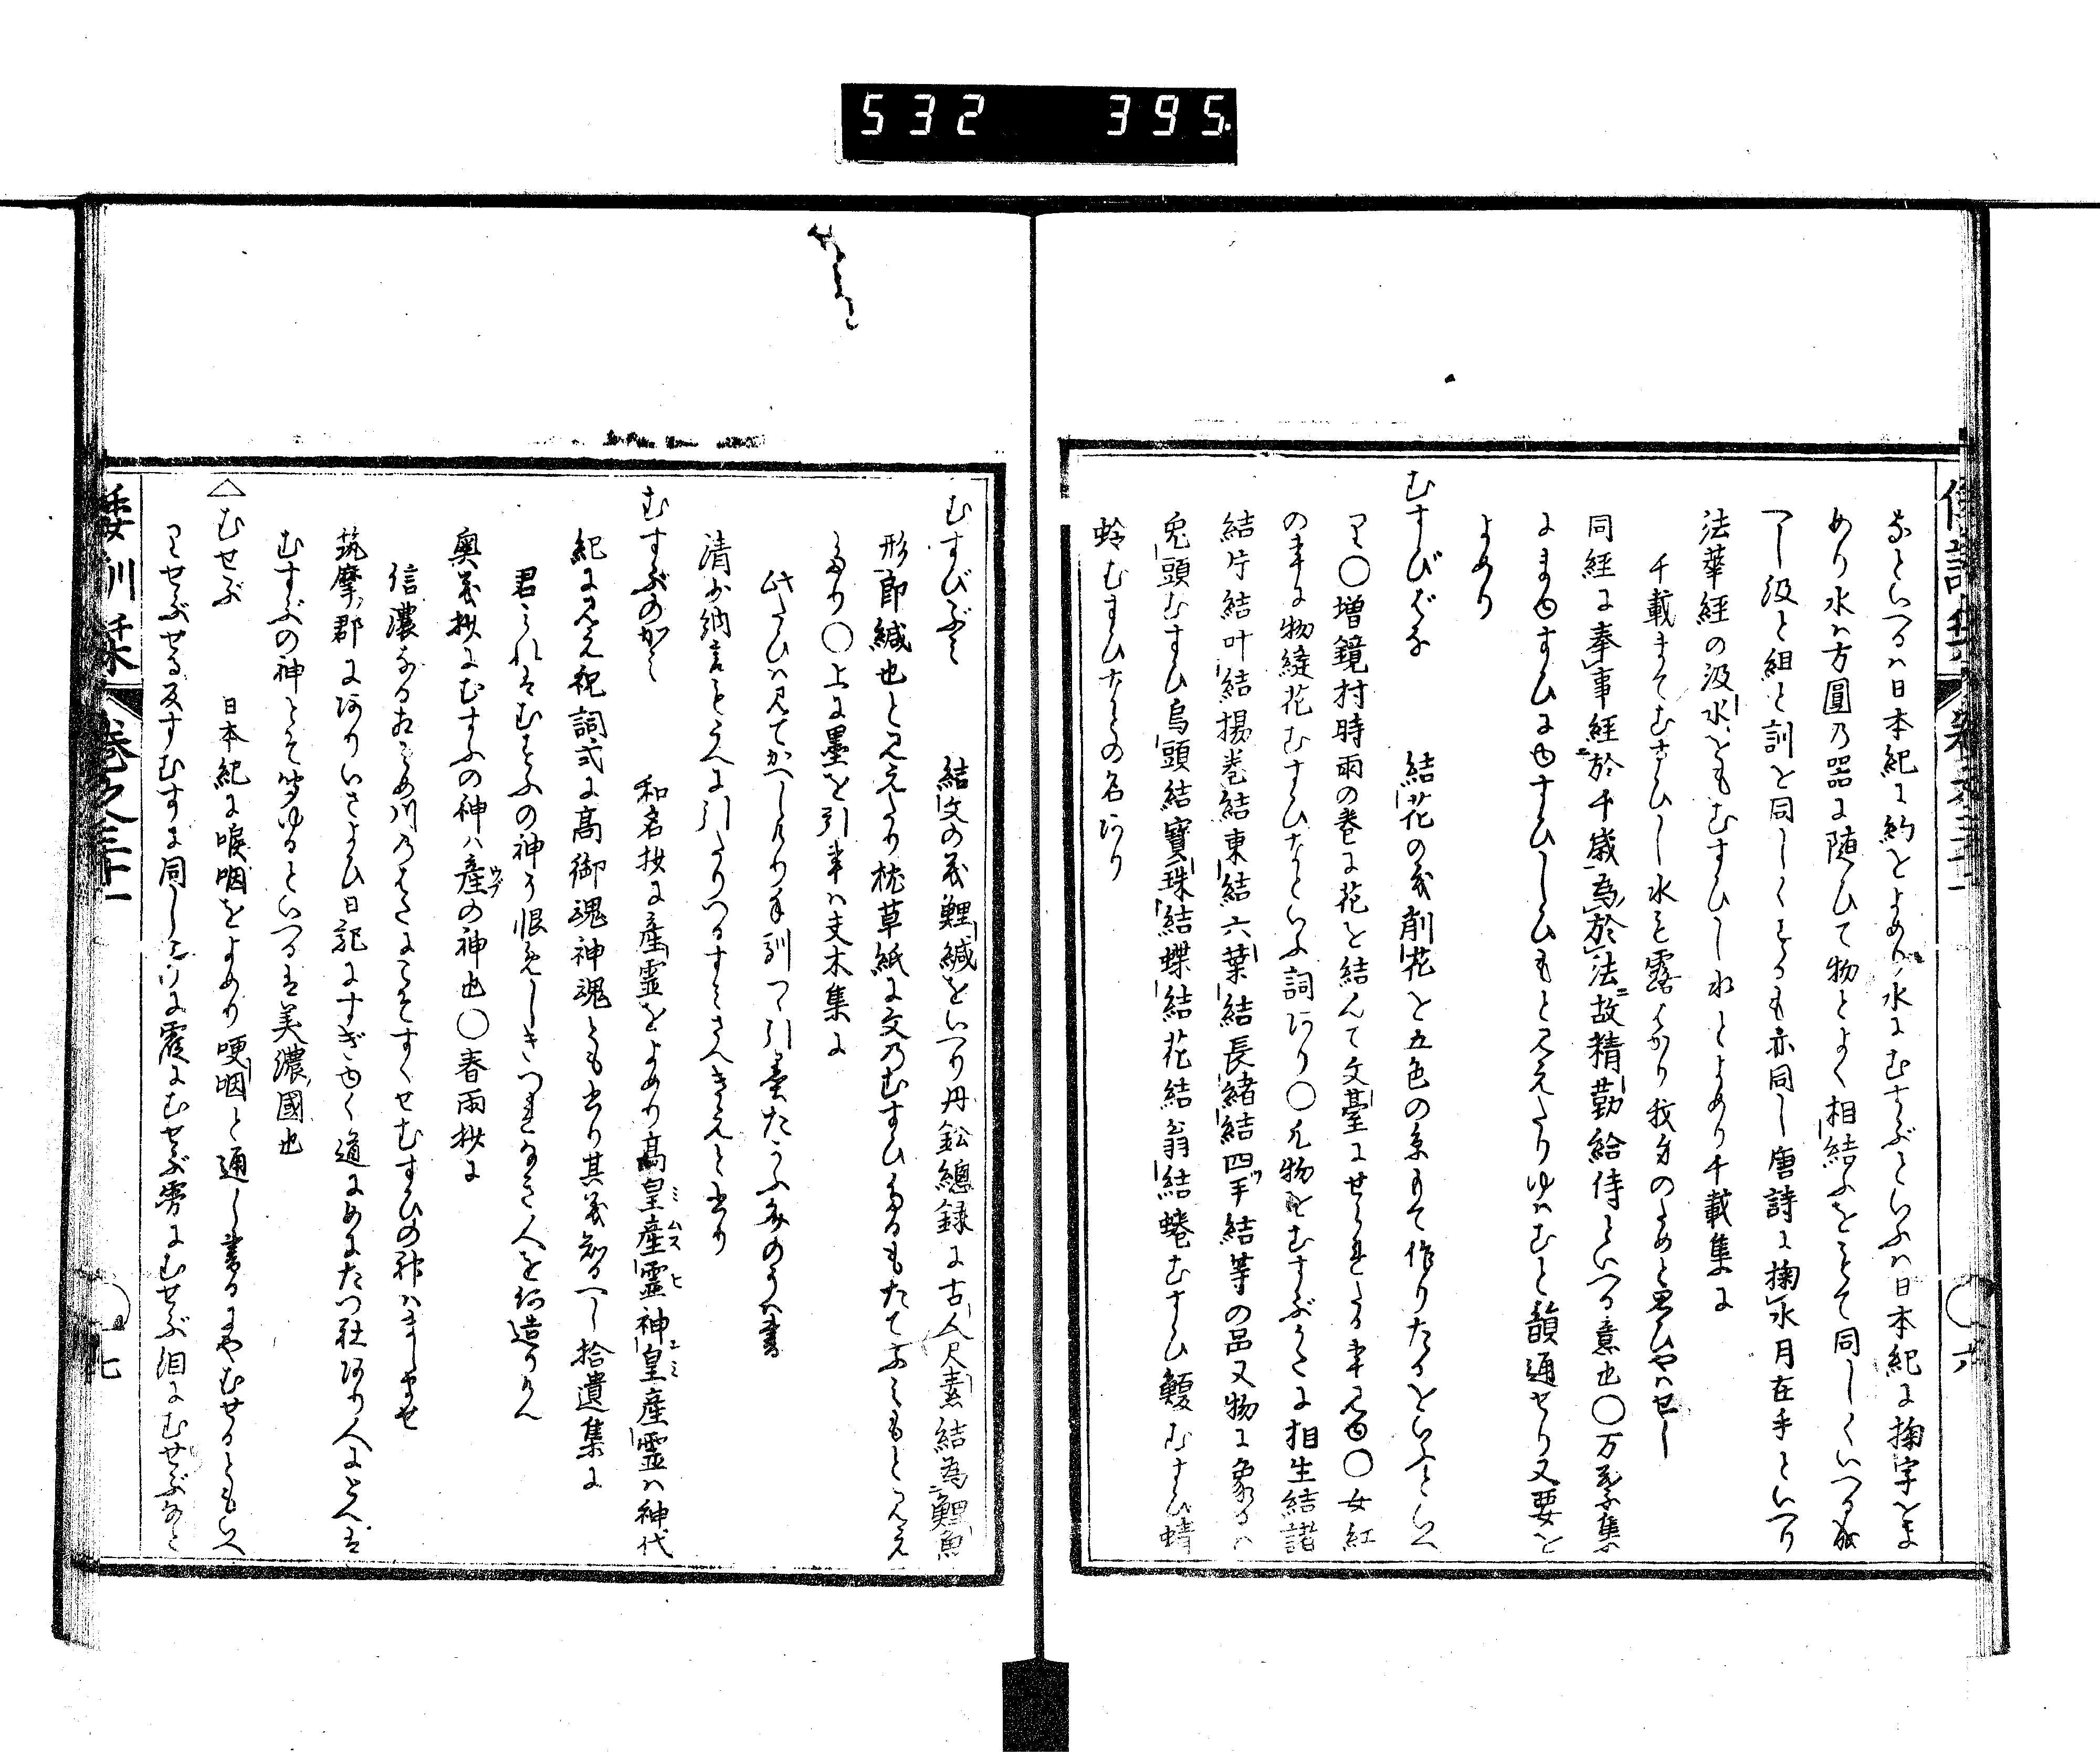 532 395.
なといへるは日本紀に約をよめり水にむすぶといふは日本紀に掬字をよ
めり水は方圓の器に随ひて物とよく相結ふをもて同しくいへる成
へし汲と組と訓を同しくするも亦同し唐詩に掬水月在手といへり
法華経の汲水をもむすひし水とよめり千載集に
千載まてむすひし水も露はかり我身のためと思ひやはせし
同経に奉事経於千歳為於法故精勤給侍といへる意也〇万葉集
にまゆすひにゆすひしひもと見えたりゆはむと韻通せり又要を
よめり
むすびばな 結花の義削花を五色の糸もて作りたるをいふといへ
り〇増鏡村時雨の巻に花を結んて文臺にせられたる事見ゆ〇女紅
の事に物縫花むすひなといふ詞あり〇凡物をむすぶかたに相生結諸
結片結叶結揚巻結東結六葉結長緒結四手結等の品又物に象るは
兎頭むすひ烏頭結寶珠結蝶結花結翁結蜷むすひ鰒むすひ蜻
蛉むすひなとの名あり
倭訓栞 巻之三十一 六
むすびぶみ 結文の義鯉緘をいへり丹鉛總録に古人尺素結為鯉魚
形即緘也と見えたり枕草紙に文のむすひたるもたてふみもと見え
たり〇上に墨を引事は夫木集に
此たひは見てかへしけり手馴つゝ引墨たかふ文のうは書
清少納言もうへに引たりつるすみさへきえてと書り
むすぶのかみ 和名抄に産霊をよめり高皇産霊神皇産霊は神代
紀に見え祝詞式に高御魂神魂とも書り其義知へし拾遺集に
君みれはむすふの神そ恨めしきつれなき人を何造りけん
奥義抄にむすふの神は産の神也〇春雨抄に
信濃なるあひそめ川のはたにこそすくせむすひの神はましませ
筑摩郡にありいさよひ日記にすぎゆく道にめにたつ社あり人にとへは
むすぶの神とそ聞ゆるといへるは美濃國也
△むせぶ 日本紀に喉咽をよめり哽咽と通し書るにやむせるともいへ
りせぶせる反すむすに同し
に霞にむせぶ雾にむせぶ泪にむせぶなと
倭訓栞 巻之三十一 七